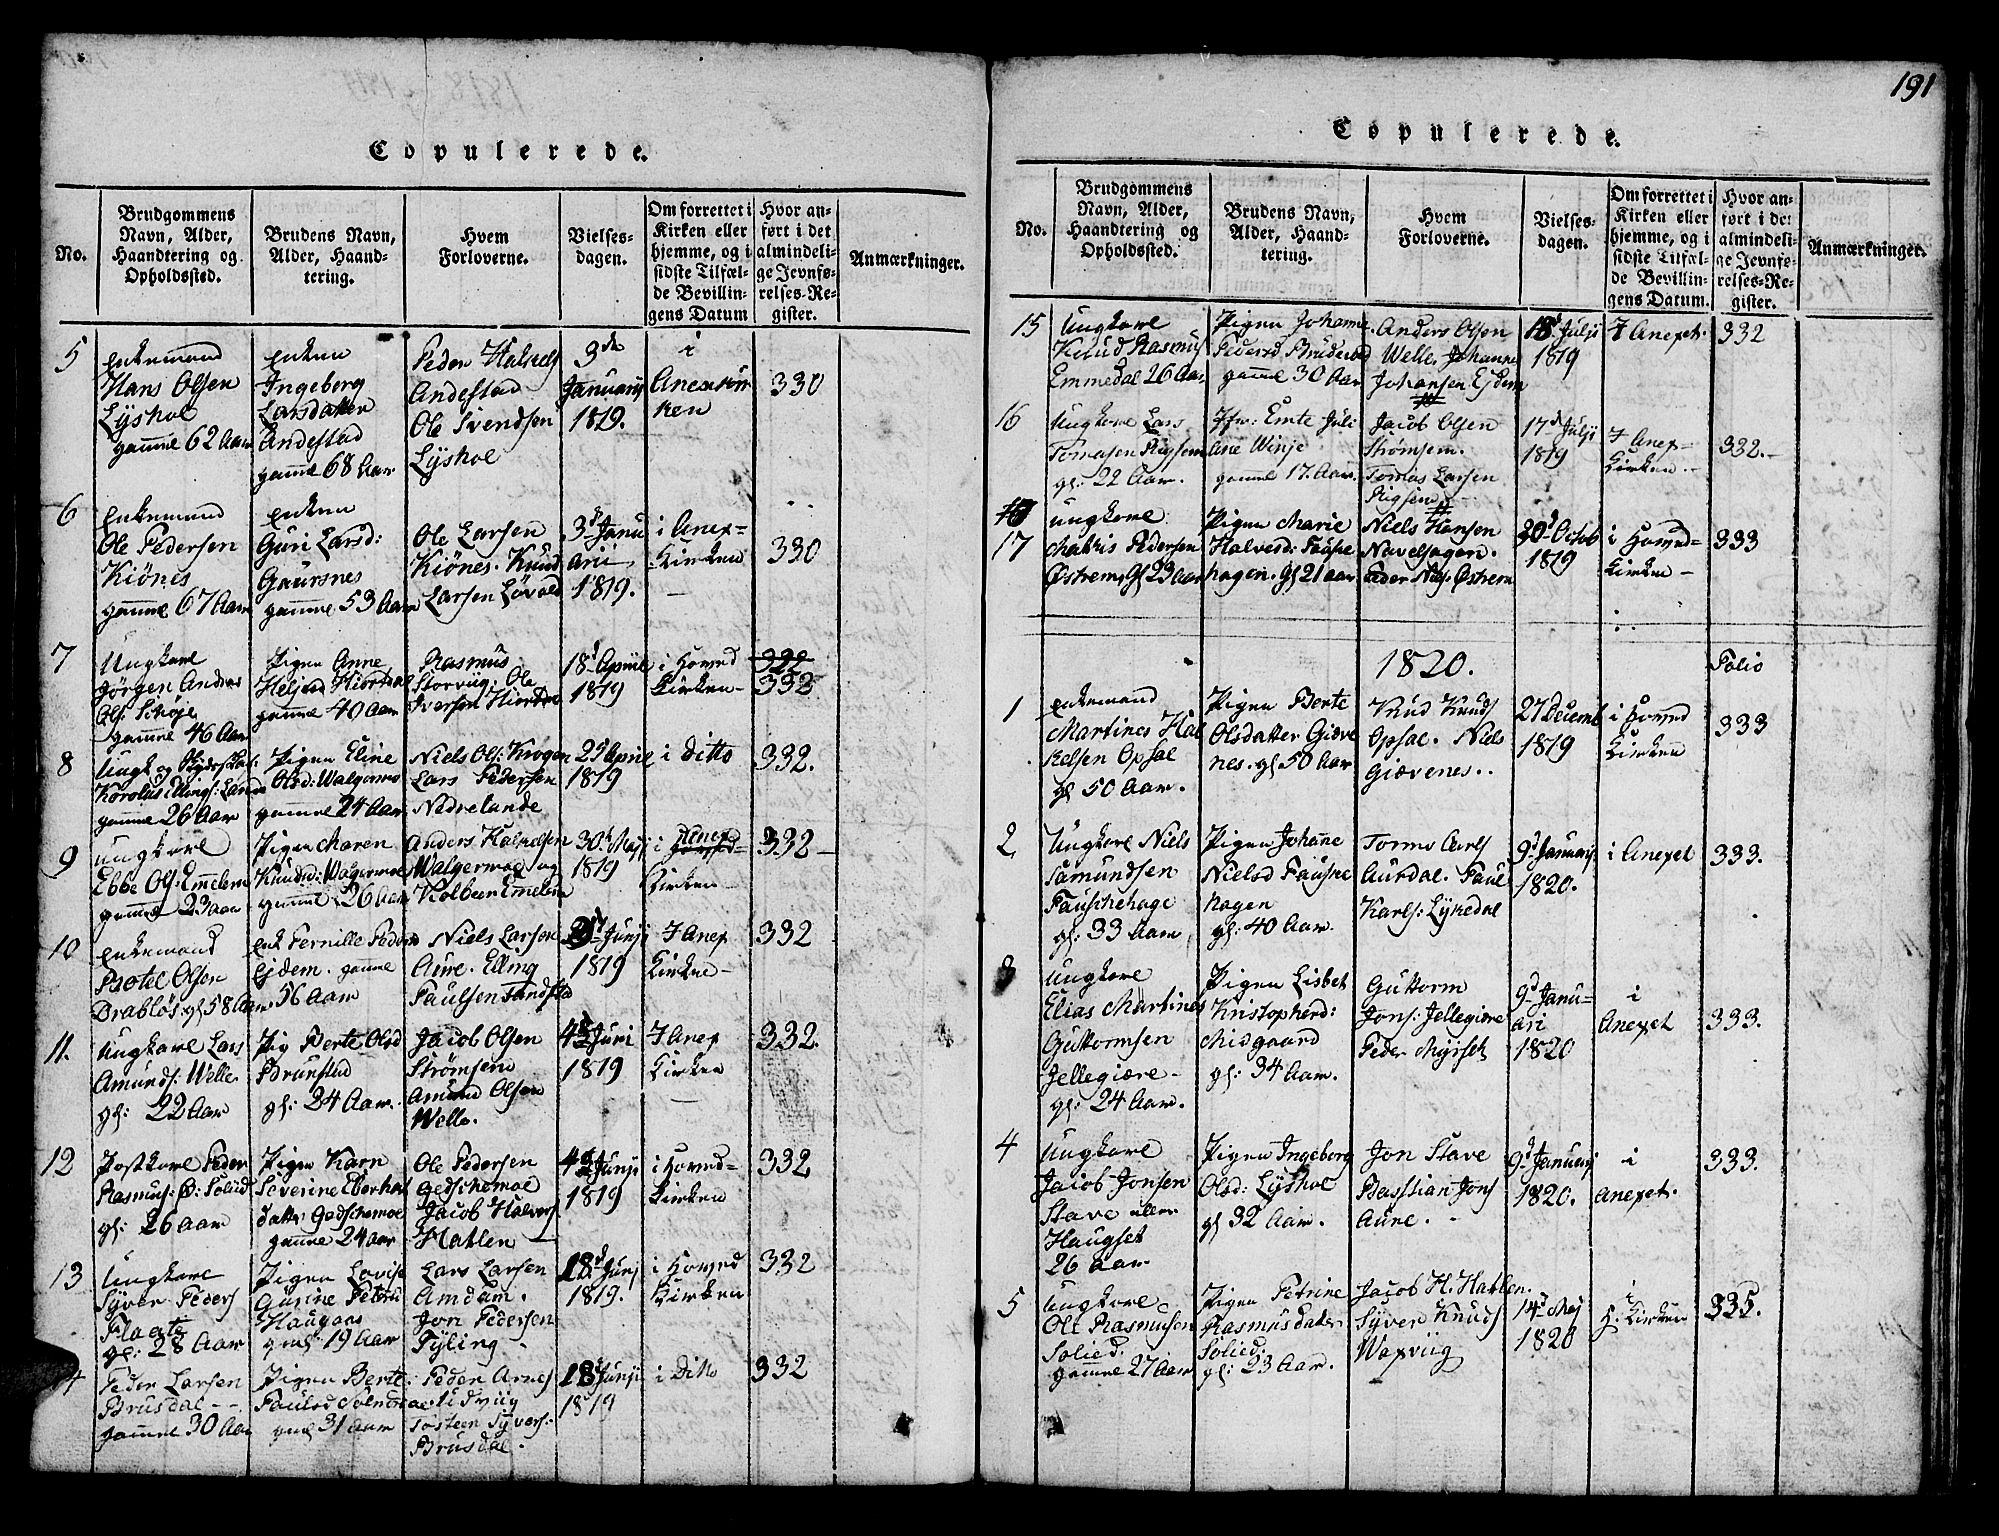 Copulerede.
No.
Brudgommens
Navn, Alder,
Haandtering og
Opholdssted.
Brudens Navn,
Alder, Haand-
tering.
Hvem
Forloverne.
Vielses-
dagen.
Om forrettet i
Kirken eller
hjemme, og i
sidste Tilfæl-
de Bevillin-
gens Datum
Hvor an-
ført i det
almindeli-
ge Jevnfø-
relses-Re-
gister.
Anmærkninger.
5
Enkemand
Hans Olsen
Lyshol
gamme 62 Aar
Enken
Ingeberg
Larsdatter
Andestad
gamme 68 Aar
Peder Halstens
Andestad
Ole Svendsen
Lyshol
3de
Januarij
1819.
i
Anexkir
ken
330
6
Enkemand
Ole Pedersen
Kiönes
gamme 67 Aar
Enken
Guri Larsd:
Gaursnes
gamme 53 Aar
Ole Larsen
Kiönes. Knud
Larsen Lövold
3d Janu
ari
1819.
i Anex-
Kirken
330
7
Ungkarl
Jörgen Anders
Ols: Schöje
gamme 46 Aar
Pigen Anne
Heljesd Hiortdal
gamme 40 Aar
Rasmus
Storvüg: Ole
Iverson Hiortdal
18d Apriil
1819
i Hoved
Kirken-
322
332
8
Karolus Ellings: Lande
gamme 26 Aar
Pigen Eline
Olsd: Walgermo
gamme 24 Aar
Niels Ols: Krogen
Lars Pedersen
Nedrelande
25 Aprile
1819
i ditto
332.
9
Ungkarl
Ebbe Ols: Emmelem
gamme 23 aar
Pigen Maren
Knudsd: Walgermoe
gamme 26 Aar
Anders Halvelsen
Walgermoe og
Kolbeen Emelem
30d Maij
1819
i Anex
Kirken-
332
10
Enkemand
Peotel Olsen
Drablös gl 58 Aar
Enk Pernille Peders
Ejdem. gamme
56 Aar
Niels Larsen
Aure. Elling
Paulsen Tandstad
Junij
1819
I Anex
Kirken-
332
11.
Ungkarl Lars
Amunds: Welle
gl: 22 Aar
Pig Berte Olsd
Brunstad
gl: 24 Aar.
Jacob Olsen
Strömsem
Amund Olsen
Welle.
4d Juni
1819
I Anex
Kirken
332.
12
Postkarl Peder
Rasmus: B: Solied
gl: 26 Aar
Pigen Karn
Severine Eberhar
datter Gedschemoe
gamme 24 aar
Ole Pedersen
Gedschemoe
Jacob Halvors
Hatlen
4d Junij
1819
i Hoved-
Kirken
332
13
Ungkarl
Syver Peders
Flaate
gl: 28 Aar
Pigen Lovise
Gurine Petersd
Haugaas
gml 19 Aar
Lars Larsen
Amdam.
Jon Pedersen
Tyling -
18d Junj
1819.
i Hoved
Kirken
332
14
Peder Larsen
Brusdal - -
gamme 30 Aar
Pigen Berte
Paulsd Solnördal
gml 31 Aar
Peder Arnes
Tosteen Syvers:
Brusdal.
18d Junji
1819
i Ditto
332
191
Copulerede.
No.
Brudgommens
Navn, Alder,
Haandtering og
Opholdssted.
Brudens Navn,
Alder, Haand-
tering.
Hvem
Forloverne.
Vielses-
dagen.
Om forrettet i
Kirken eller
hjemme, og i
sidste Tilfæl-
de Bevillin-
gens Datum.
Hvor an-
ført i det
almindeli-
ge Jevnfø-
relses-Re-
gister.
Anmærkninger.
15
Ungkarl
Knud Rasmus
Emmedal 26 Aar
Pigen Johanne
Pedersd Brudevold
gamme 30 Aar
Anders Olsen
Welle. Johannes
Johansen Ejdem
18d Julji
1819
I Anexet.
332
16
Ungkarl Lars
Tomasen
gl. 22 Aar.
Jfr: Emte Juli
ane Winje
gamme 17. Aar.
Jacob Olsen
Strömsem.
Tomas Larsen
17d Julji
1819
I Anex-
Kirken.-
332.-
17
Ungkarl
Mattis Pedersen
Östrem gl 23 aar
Pigen Marie
Halversd: Fauske
hagen. gl 21 aar
Niels Hansen
Navelsagen.
Peder Niels. Östrem
30d Octob
1819
i Hoved-
Kirken-
333
1820.
Folio
1
Enkemand
Martines Hal
kelsen Opsal
gl 50 Aar.
Pigen Berte
Olsdatter Giære
nes. gl 50 Aar
Knud Knuds
Opsal. Niels
Giævenes..
27 Decemb
1819
i Hoved
Kirken
333
2
Ungkarl Niels
Samundsen
Fauschehage
gl: 33 Aar
Pigen Johanne
Nielsd Fauske
hagen
gl: 40 Aar
Tormo Carls
Aurdal. Paul
Karls: Lykedal
9d Januarj
1820.
i Anexet
333.
3
Ungkarl
Elias Martines
Guttormsen
Jellegiære-
gl: 24 Aar.
Pigen Lisbet
Kristopherd:
Misgaard
gl: 34 Aar.
Guttorm
Jons: Jellegiære
Peder Myrset
9d Janu-
ari
1820
i
Anexet
333.
4
Ungkarl
Jacob Jonsen
Stave eller
Haugset
26 aar
Pigen Ingeborg
Olsd: Lyshol
gl 32 Aar.
Jon Stave
Basstian Jons
Aure.
9d Januarj
1820.
i
Anexet.
333.
5
Ungkarl
Ole Rasmusen
Solied.
gamme 27 Aar
Pigen Petrine
Rasmusdatter
Solied:
gl: 23 Aar.
Jacob H. Hatlen
Syver Knuds
Waxviig
14d Maj
1820
i
H. Kirken
335.